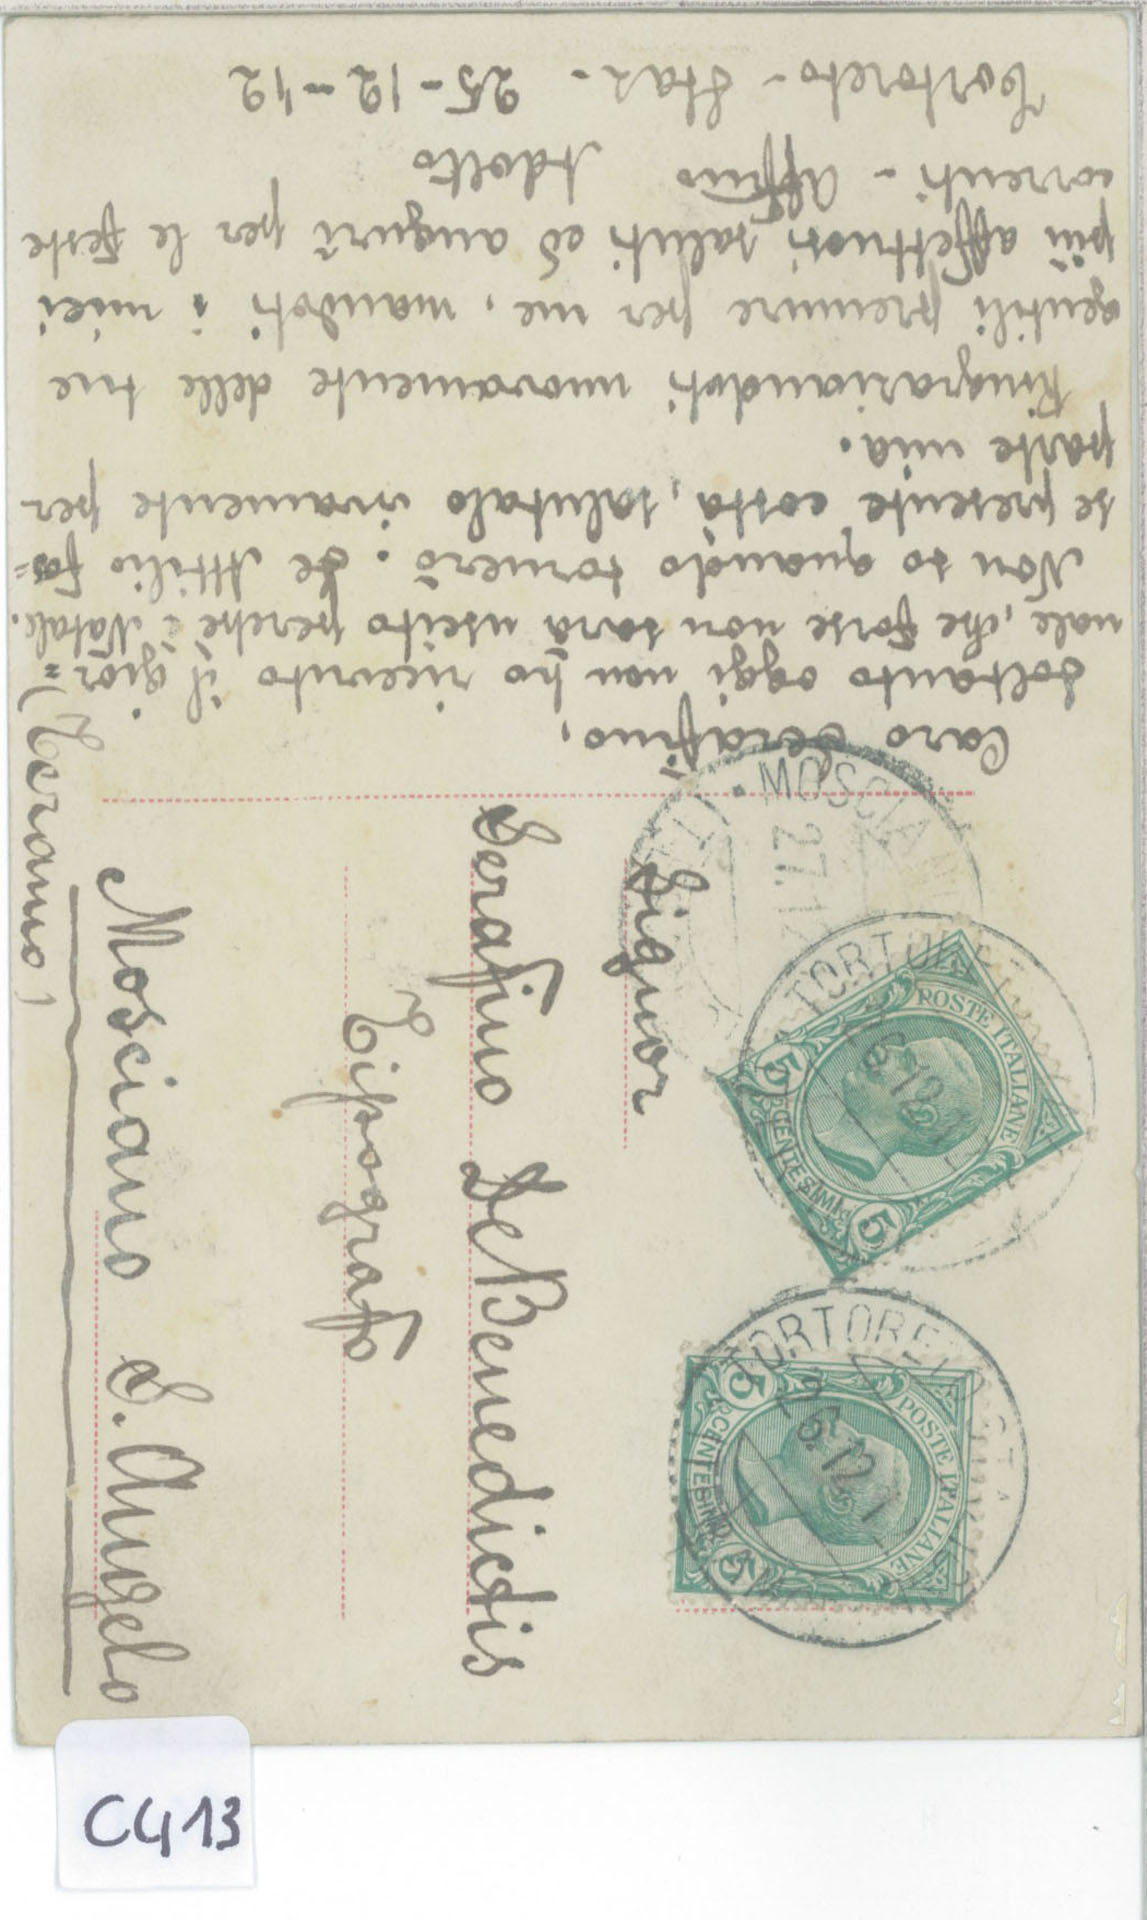 Caro Serafino,
soltanto oggi non ho ricevuto il gior=
nale, che forse non sarà uscito perchè è Natale.
Non so quando tornerò. Se Attilio fos=
se presente costà, salutalo vivamente per
parte mia.
Ringraziandoti nuovamente delle tue
gentili premure per me, mandoti i miei
più affettuosi saluti ed auguri per le feste
correnti - Affmo Adolfo
Tortoreto - Staz. - 25-12-12
Signor
Serafino De Benedictis
Tipografo
Mosciano S. Angelo
(Teramo)
MOSCIANO
27.1
TORTORETO
POSTE ITALIANE
5 CENTESIMI 5
TORTORETO STA
26.12.1
POSTE ITALIANE
5 CENTESIMI 5
C413